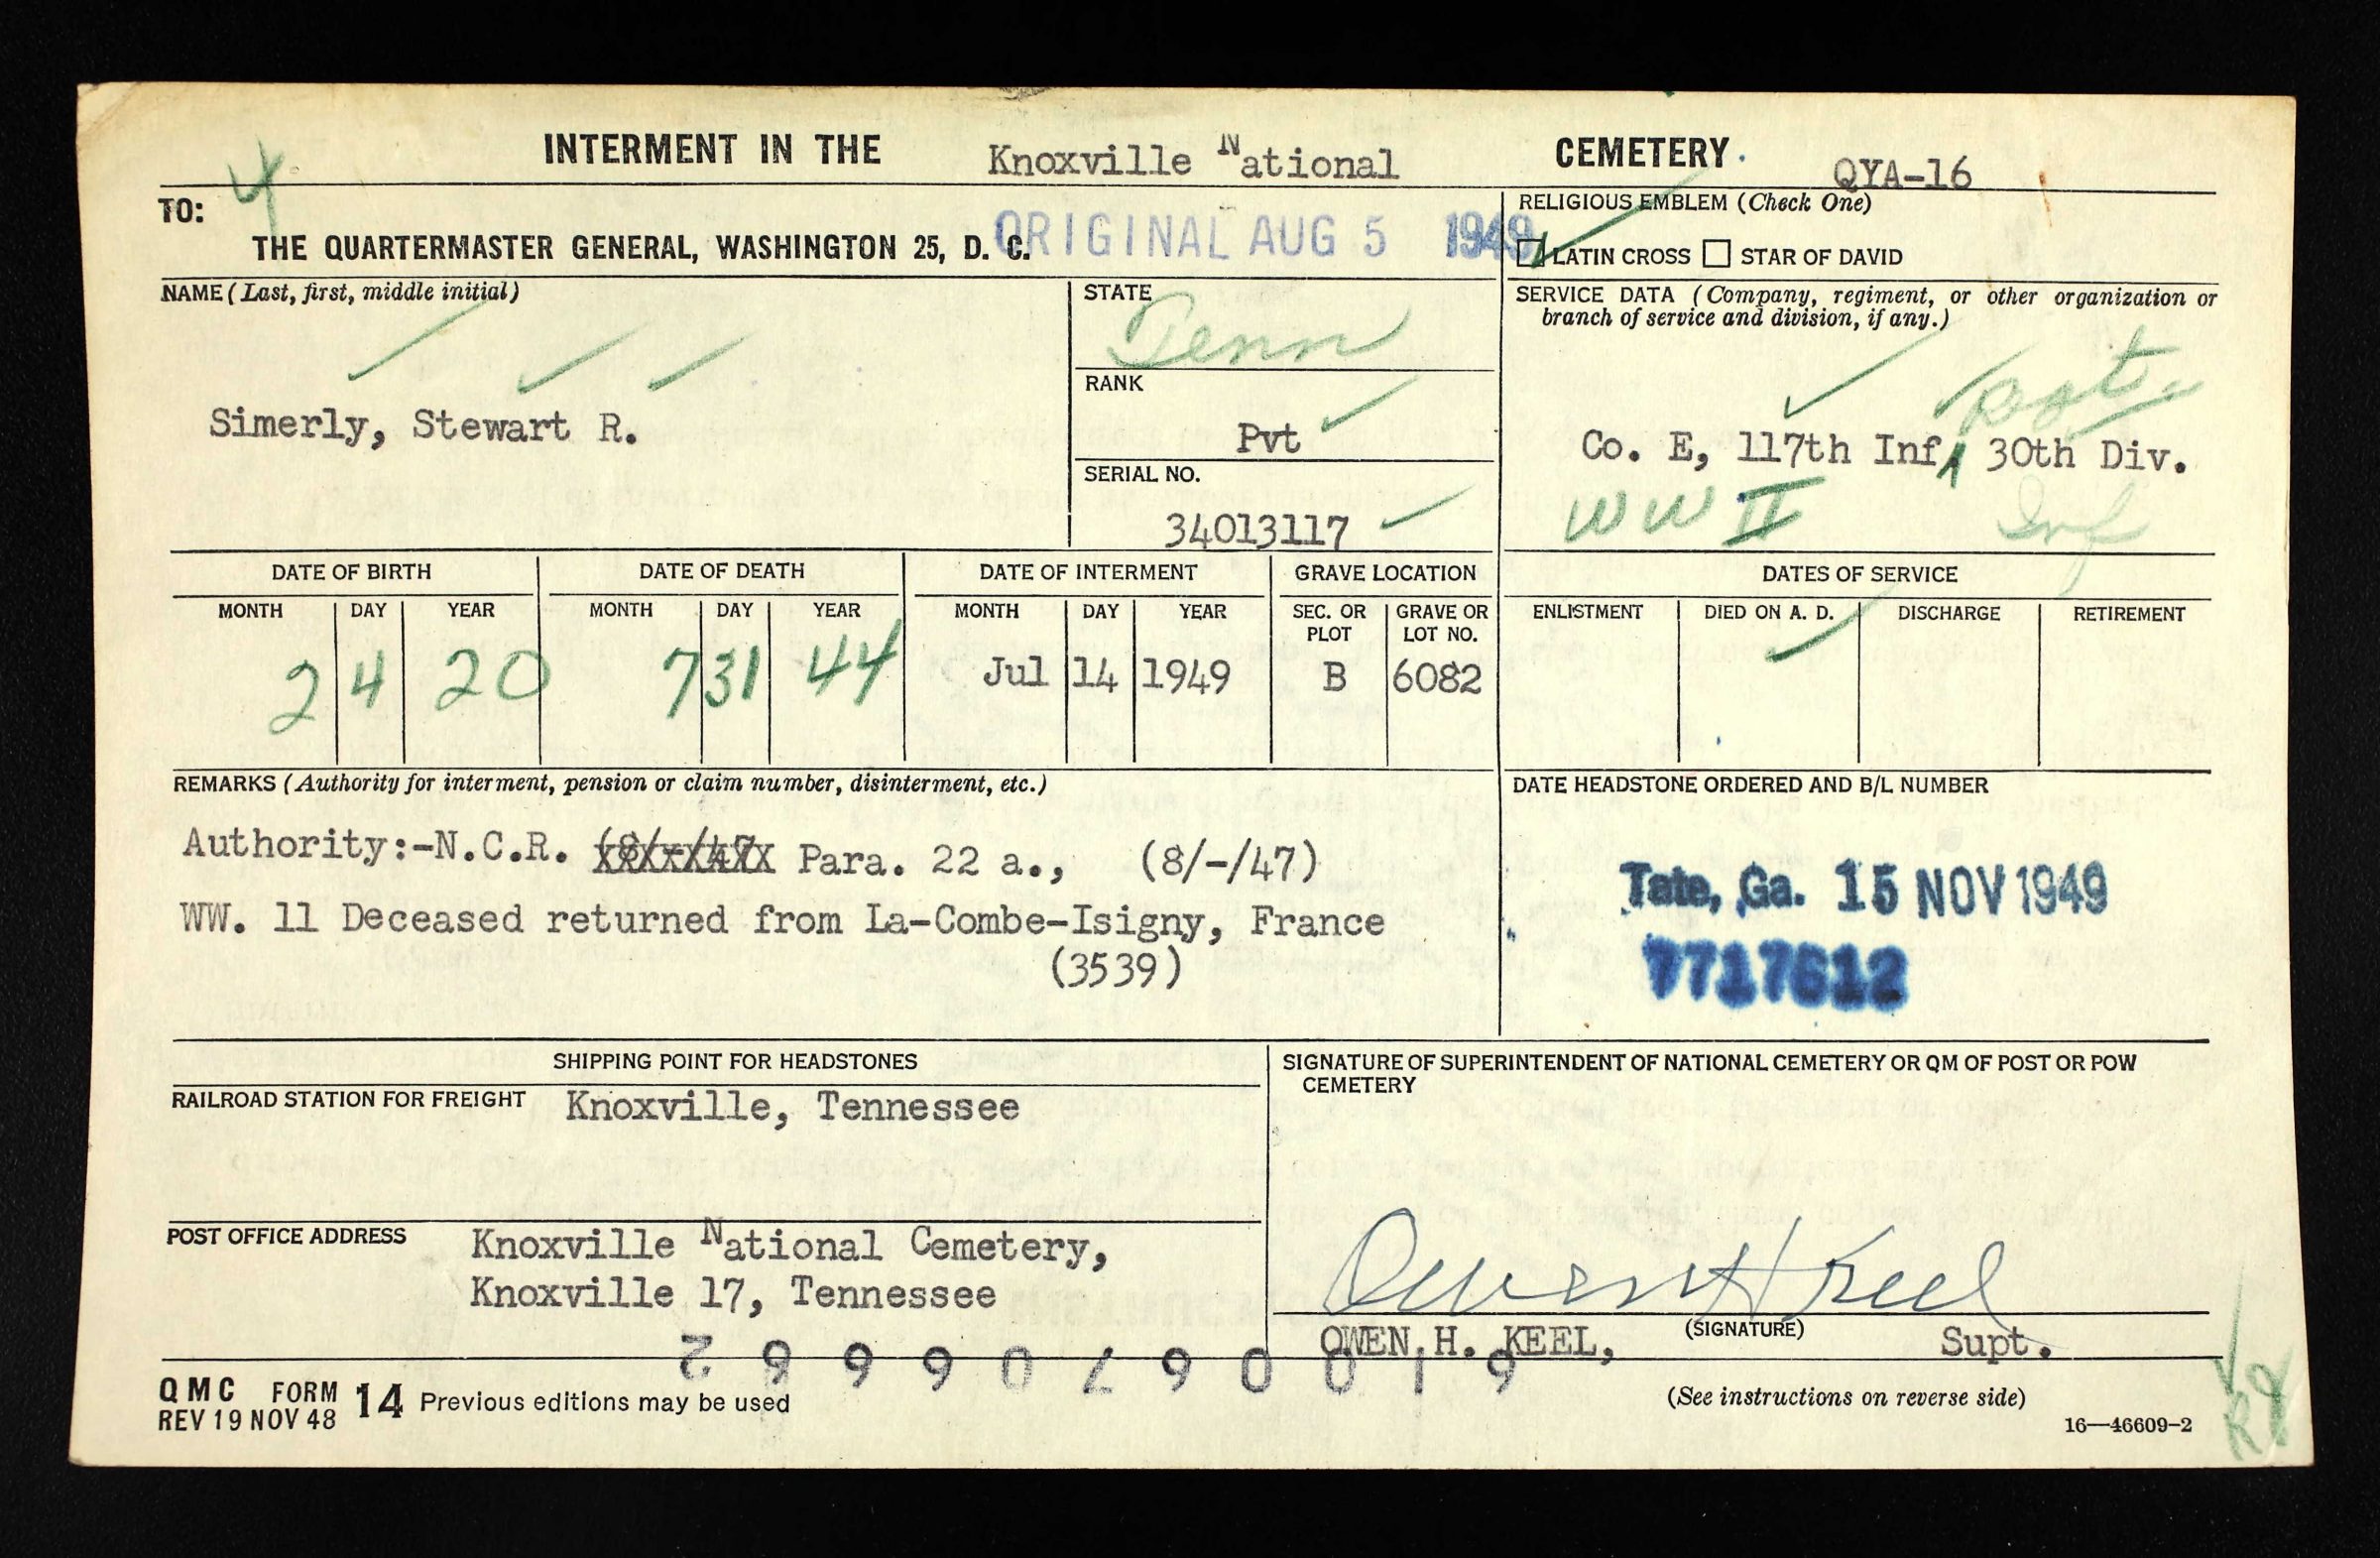 4
INTERMENT IN THE Knoxville National CEMETERY. QYA-16
TO:
THE QUARTERMASTER GENERAL, WASHINGTON 25, D. C.
ORIGINAL AUG 5 1949
RELIGIOUS EMBLEM (Check One)
LATIN CROSS STAR OF DAVID
NAME (Last, first, middle initial)
Simerly, Stewart R.
STATE
Tenn
RANK
Pvt
SERIAL NO.
34013117
SERVICE DATA (Company, regiment, or other organization or
branch of service and division, if any.)
Regt.
Co. E, 117th Inf, 30th Div.
WW II Inf
DATE OF BIRTH DATE OF DEATH DATE OF INTERMENT GRAVE LOCATION DATES OF SERVICE
MONTH DAY YEAR MONTH DAY YEAR MONTH DAY YEAR SEC. OR PLOT GRAVE OR LOT NO. ENLISTMENT DIED ON A. D. DISCHARGE RETIREMENT
2 4 20 7 31 44 Jul 14 1949 B 6082
REMARKS (Authority for interment, pension or claim number, disinterment, etc.)
Authority:-N.C.R. Para. 22 a., (8/-/47)
WW. 11 Deceased returned from La-Combe-Isigny, France
(3539)
DATE HEADSTONE ORDERED AND B/L NUMBER
Tate, Ga. 15 NOV 1949
7717612
SHIPPING POINT FOR HEADSTONES
RAILROAD STATION FOR FREIGHT Knoxville, Tennessee
POST OFFICE ADDRESS Knoxville National Cemetery,
Knoxville 17, Tennessee
SIGNATURE OF SUPERINTENDENT OF NATIONAL CEMETERY OR QM OF POST OR POW
CEMETERY
Owen H Keel
OWEN H. KEEL, (SIGNATURE) Supt.
QMC FORM 14 Previous editions may be used
REV 19 NOV 48
(See instructions on reverse side)
16—46609-2